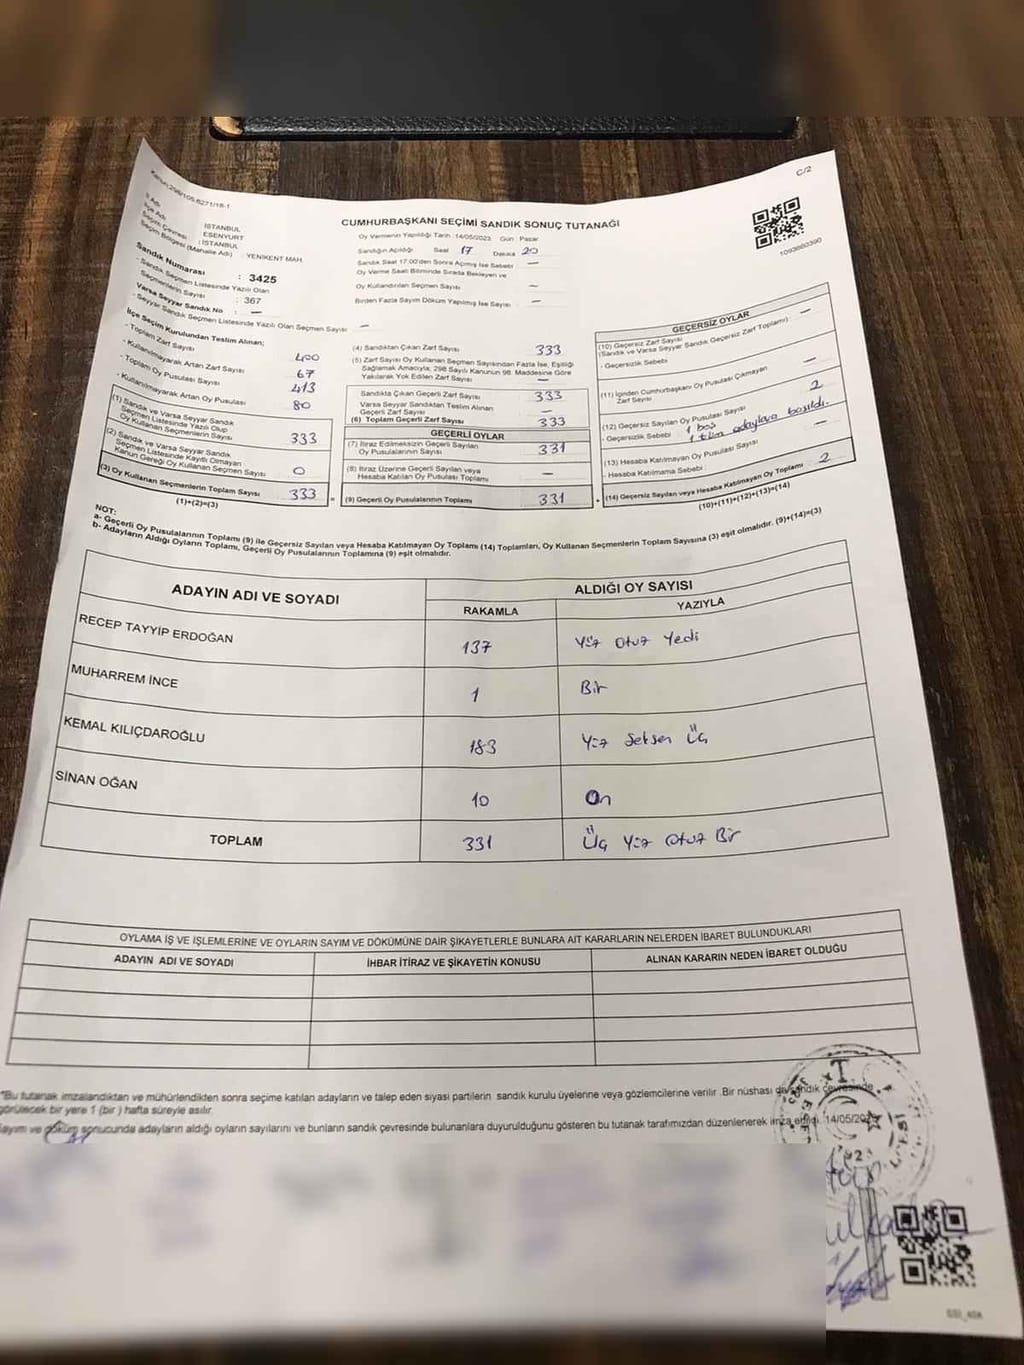 Kanun:298/105.6271/18-1
C/2
CUMHURBAŞKANI SEÇİMİ SANDIK SONUÇ TUTANAĞI
İl Adı : İSTANBUL
İlçe Adı : ESENYURT
Seçim Çevresi : İSTANBUL
Seçim Bölgesi (Mahalle Adı) : YENIKENT MAH.
Sandık Numarası : 3425
- Sandık Seçmen Listesinde Yazılı Olan
Seçmenlerin Sayısı : 367
Varsa Seyyar Sandık No : —
- Seyyar Sandık Seçmen Listesinde Yazılı Olan Seçmen Sayısı : —
Oy Vermenin Yapıldığı Tarih : 14/05/2023 Gün : Pazar
Sandığın Açıldığı Saat 17 Dakika 20
Sandık Saat 17.00'den Sonra Açılmış İse Sebebi : —
Oy Verme Saati Bitiminde Sırada Bekleyen ve
Oy Kullandırılan Seçmen Sayısı : —
Birden Fazla Sayım Döküm Yapılmış İse Sayısı : —
1093860390
İlçe Seçim Kurulundan Teslim Alınan;
- Toplam Zarf Sayısı 400
- Kullanılmayarak Artan Zarf Sayısı 67
- Toplam Oy Pusulası Sayısı 413
- Kullanılmayarak Artan Oy Pusulası 80
(1) Sandık ve Varsa Seyyar Sandık
Seçmen Listesinde Yazılı Olup
Oy Kullanan Seçmenlerin Sayısı 333
(2) Sandık ve Varsa Seyyar Sandık
Seçmen Listesinde Kayıtlı Olmayan
Kanun Gereği Oy Kullanan Seçmen Sayısı 0
(3) Oy Kullanan Seçmenlerin Toplam Sayısı 333 =
(1)+(2)=(3)
(4) Sandıktan Çıkan Zarf Sayısı 333
(5) Zarf Sayısı Oy Kullanan Seçmen Sayısından Fazla İse, Eşitliği
Sağlamak Amacıyla; 298 Sayılı Kanunun 98. Maddesine Göre
Yakılarak Yok Edilen Zarf Sayısı —
Sandıkta Çıkan Geçerli Zarf Sayısı 333
Varsa Seyyar Sandıktan Teslim Alınan
Geçerli Zarf Sayısı —
(6) Toplam Geçerli Zarf Sayısı 333
GEÇERLİ OYLAR
(7) İtiraz Edilmeksizin Geçerli Sayılan
Oy Pusulalarının Sayısı 331
(8) İtiraz Üzerine Geçerli Sayılan veya
Hesaba Katılan Oy Pusulaları Toplamı —
(9) Geçerli Oy Pusulalarının Toplamı 331 +
GEÇERSİZ OYLAR
(10) Geçersiz Zarf Sayısı
(Sandık ve Varsa Seyyar Sandık Geçersiz Zarf Toplamı) : —
- Geçersizlik Sebebi
(11) İçinden Cumhurbaşkanı Oy Pusulası Çıkmayan
Zarf Sayısı —
(12) Geçersiz Sayılan Oy Pusulası Sayısı 2
- Geçersizlik Sebebi 1 boş
1 tüm adaylara basıldı.
(13) Hesaba Katılmayan Oy Pusulası Sayısı —
- Hesaba Katılmama Sebebi
(14) Geçersiz Sayılan veya Hesaba Katılmayan Oy Toplamı 2
(10)+(11)+(12)+(13)=(14)
NOT:
a- Geçerli Oy Pusulalarının Toplamı (9) ile Geçersiz Sayılan veya Hesaba Katılmayan Oy Toplamı (14) Toplamları, Oy Kullanan Seçmenlerin Toplam Sayısına (3) eşit olmalıdır. (9)+(14)=(3)
b- Adayların Aldığı Oyların Toplamı, Geçerli Oy Pusulalarının Toplamına (9) eşit olmalıdır.
ADAYIN ADI VE SOYADI
ALDIĞI OY SAYISI
RAKAMLA YAZIYLA
RECEP TAYYİP ERDOĞAN 137 Yüz Otuz Yedi
MUHARREM İNCE 1 Bir
KEMAL KILIÇDAROĞLU 183 Yüz Seksen Üç
SİNAN OĞAN 10 On
TOPLAM 331 Üç Yüz Otuz Bir
OYLAMA İŞ VE İŞLEMLERİNE VE OYLARIN SAYIM VE DÖKÜMÜNE DAİR ŞİKAYETLERLE BUNLARA AİT KARARLARIN NELERDEN İBARET BULUNDUKLARI
ADAYIN ADI VE SOYADI İHBAR İTİRAZ VE ŞİKAYETİN KONUSU ALINAN KARARIN NEDEN İBARET OLDUĞU
*Bu tutanak imzalandıktan ve mühürlendikten sonra seçime katılan adayların ve talep eden siyasi partilerin sandık kurulu üyelerine veya gözlemcilerine verilir. Bir nüshası da sandık çevresinde
görülecek bir yere 1 (bir ) hafta süreyle asılır.
Sayım ve döküm sonucunda adayların aldığı oyların sayılarını ve bunların sandık çevresinde bulunanlara duyurulduğunu gösteren bu tutanak tarafımızdan düzenlenerek imza edildi. 14/05/2023